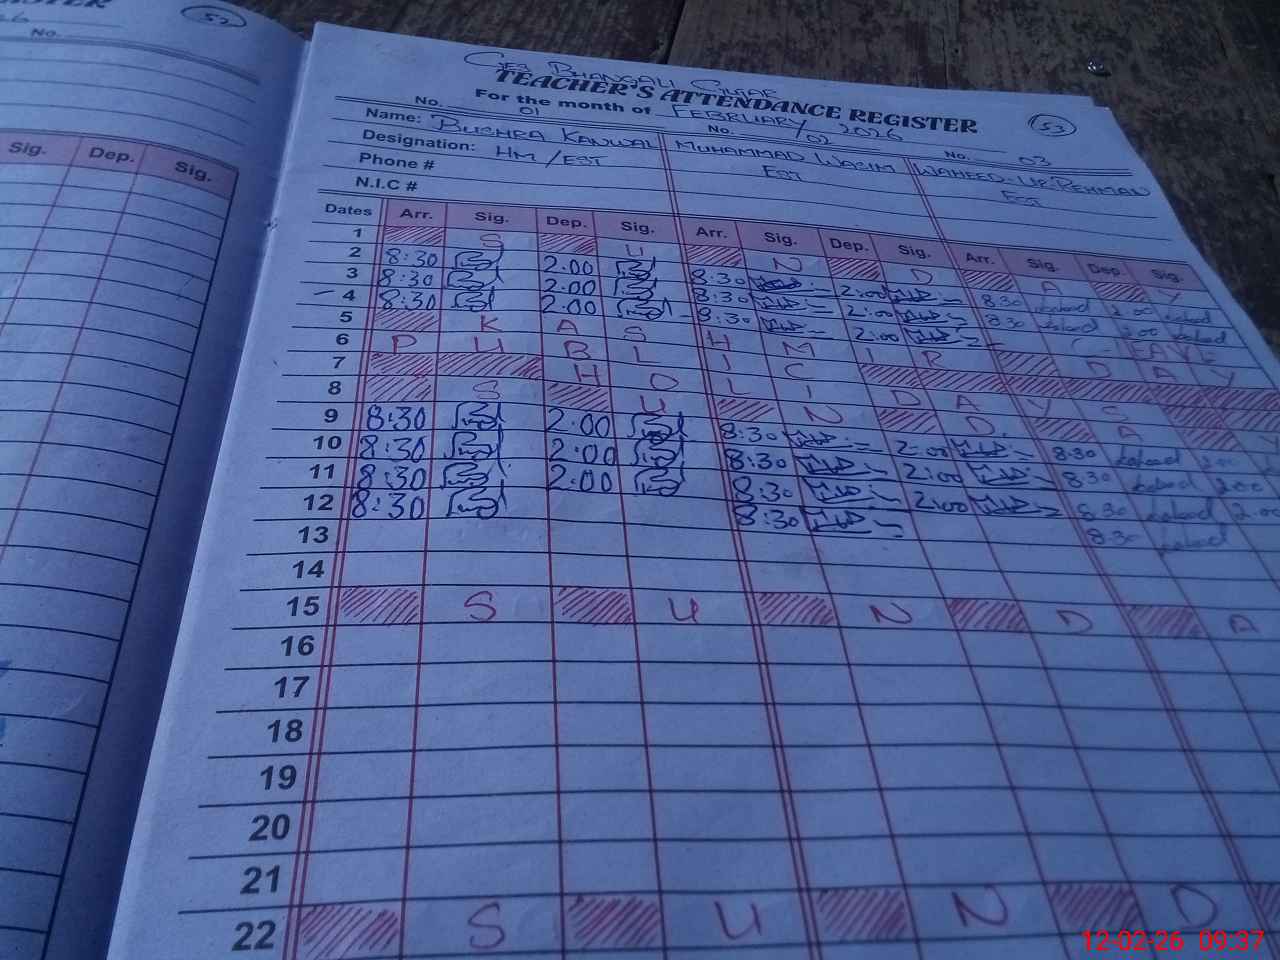 STER
52
26
No.
Sig. Dep. Sig.
GES BHANGALI GUJAR
TEACHER'S ATTENDANCE REGISTER
53
For the month of FEBRUARY 2026
No. 01 No. 02 No. 03
Name: BUSHRA KANWAL MUHAMMAD WASIM WAHEED-UR-REHMAN
Designation: HM/EST EST EST
Phone #
N.I.C #
Dates Arr. Sig. Dep. Sig. Arr. Sig. Dep. Sig. Arr. Sig. Dep. Sig.
1 S U N D A Y
2 8:30 2:00 8:30 2:00 8:30 2:00
3 8:30 2:00 8:30 2:00 8:30 2:00
4 8:30 2:00 8:30 2:00 LEAVE
5 K A S H M I R D A Y
6 P U B L I C
7 H O L I D A Y S
8 S U N D A Y
9 8:30 2:00 8:30 2:00 8:30 2:00
10 8:30 2:00 8:30 2:00 8:30 2:00
11 8:30 2:00 8:30 2:00 8:30 2:00
12 8:30 8:30 8:30
13
14
15 S U N D A
16
17
18
19
20
21
22 S U N D
12-02-26 09:37